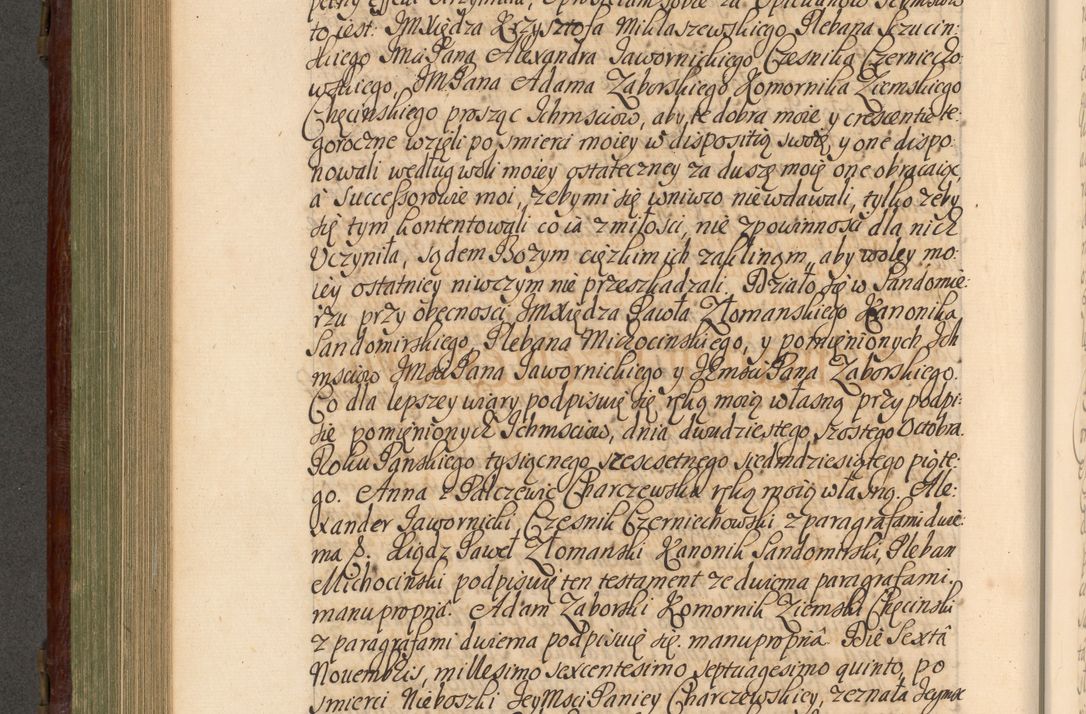 to iest: JmXiędza Krzysztofa Mikłaszewskiego Plebana Szucin:
skiego Jmći Pana Alexandra Jawornickiego Czesnika Czerniecho
wskiego, JmPana Adama Zaborskiego Komornika Ziemskiego
Chęcinskiego prosząc Ichmściow, aby te dobra moie y crescentie te:
goroczne wzięli po smierci moiey w dispositią swoię, y one dispo
nowali według woli moiey ostateczney za duszę moię one obracaiąc,
a Successorowie moi, zeby mi się wniwco niewdawali, tylko zeby
się tym kontentowali co ia z miłości, nie z powinności dla nich
Uczyniła, sądem Bozym cięzkim ich zaklinam, aby woley mo:
iey ostatniey niwczym nie przeszkadzali. Działo się w Sandomie:
rzu przy obecnosci JmXiędza Pawła Złomanskiego Kanonika
Sandomirskiego, Plebana Michocinskiego, y pomienionych Ich
mściow Jmści Pana Jawornickiego y Jemści Pana Zaborskiego.
Co dla lepszey wiary podpisuię się ręką moią własną przy podpi:
się pomienionych Ichmściow, dnia dwudziestego szostego Octobra.
Roku Panskiego tysiącnego szescsetnego siedmdziesiątego piąte:
go. Anna z Palczewic Charczewska ręką moią własną. Ale:
xander Jawornicki, Czesnik Czerniechowski z paragrafami dwie:
ma. Xiądz Paweł Złomanski Kanonik Sandomirski, Pleban
Michocinski podpisuię ten testament ze dwiema paragrafami.
manu propria. Adam Zaborski Komornik Ziemski Chęcinski
z paragrafami dwiema podpisuię się. manu propriâ. Die Sextâ
Novembris, millesimo sexcentesimo septuagesimo quinto, po
smierci Nieboszki Jeymści Paniey Charczewskiey, zeznała Jeymśc